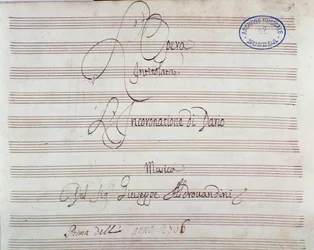 L'Opera
Intitolata
L'Incoronatione di Dario
Musica
Del Sig.r Giuseppe Aldrovandini
Prima dell' anno 1706